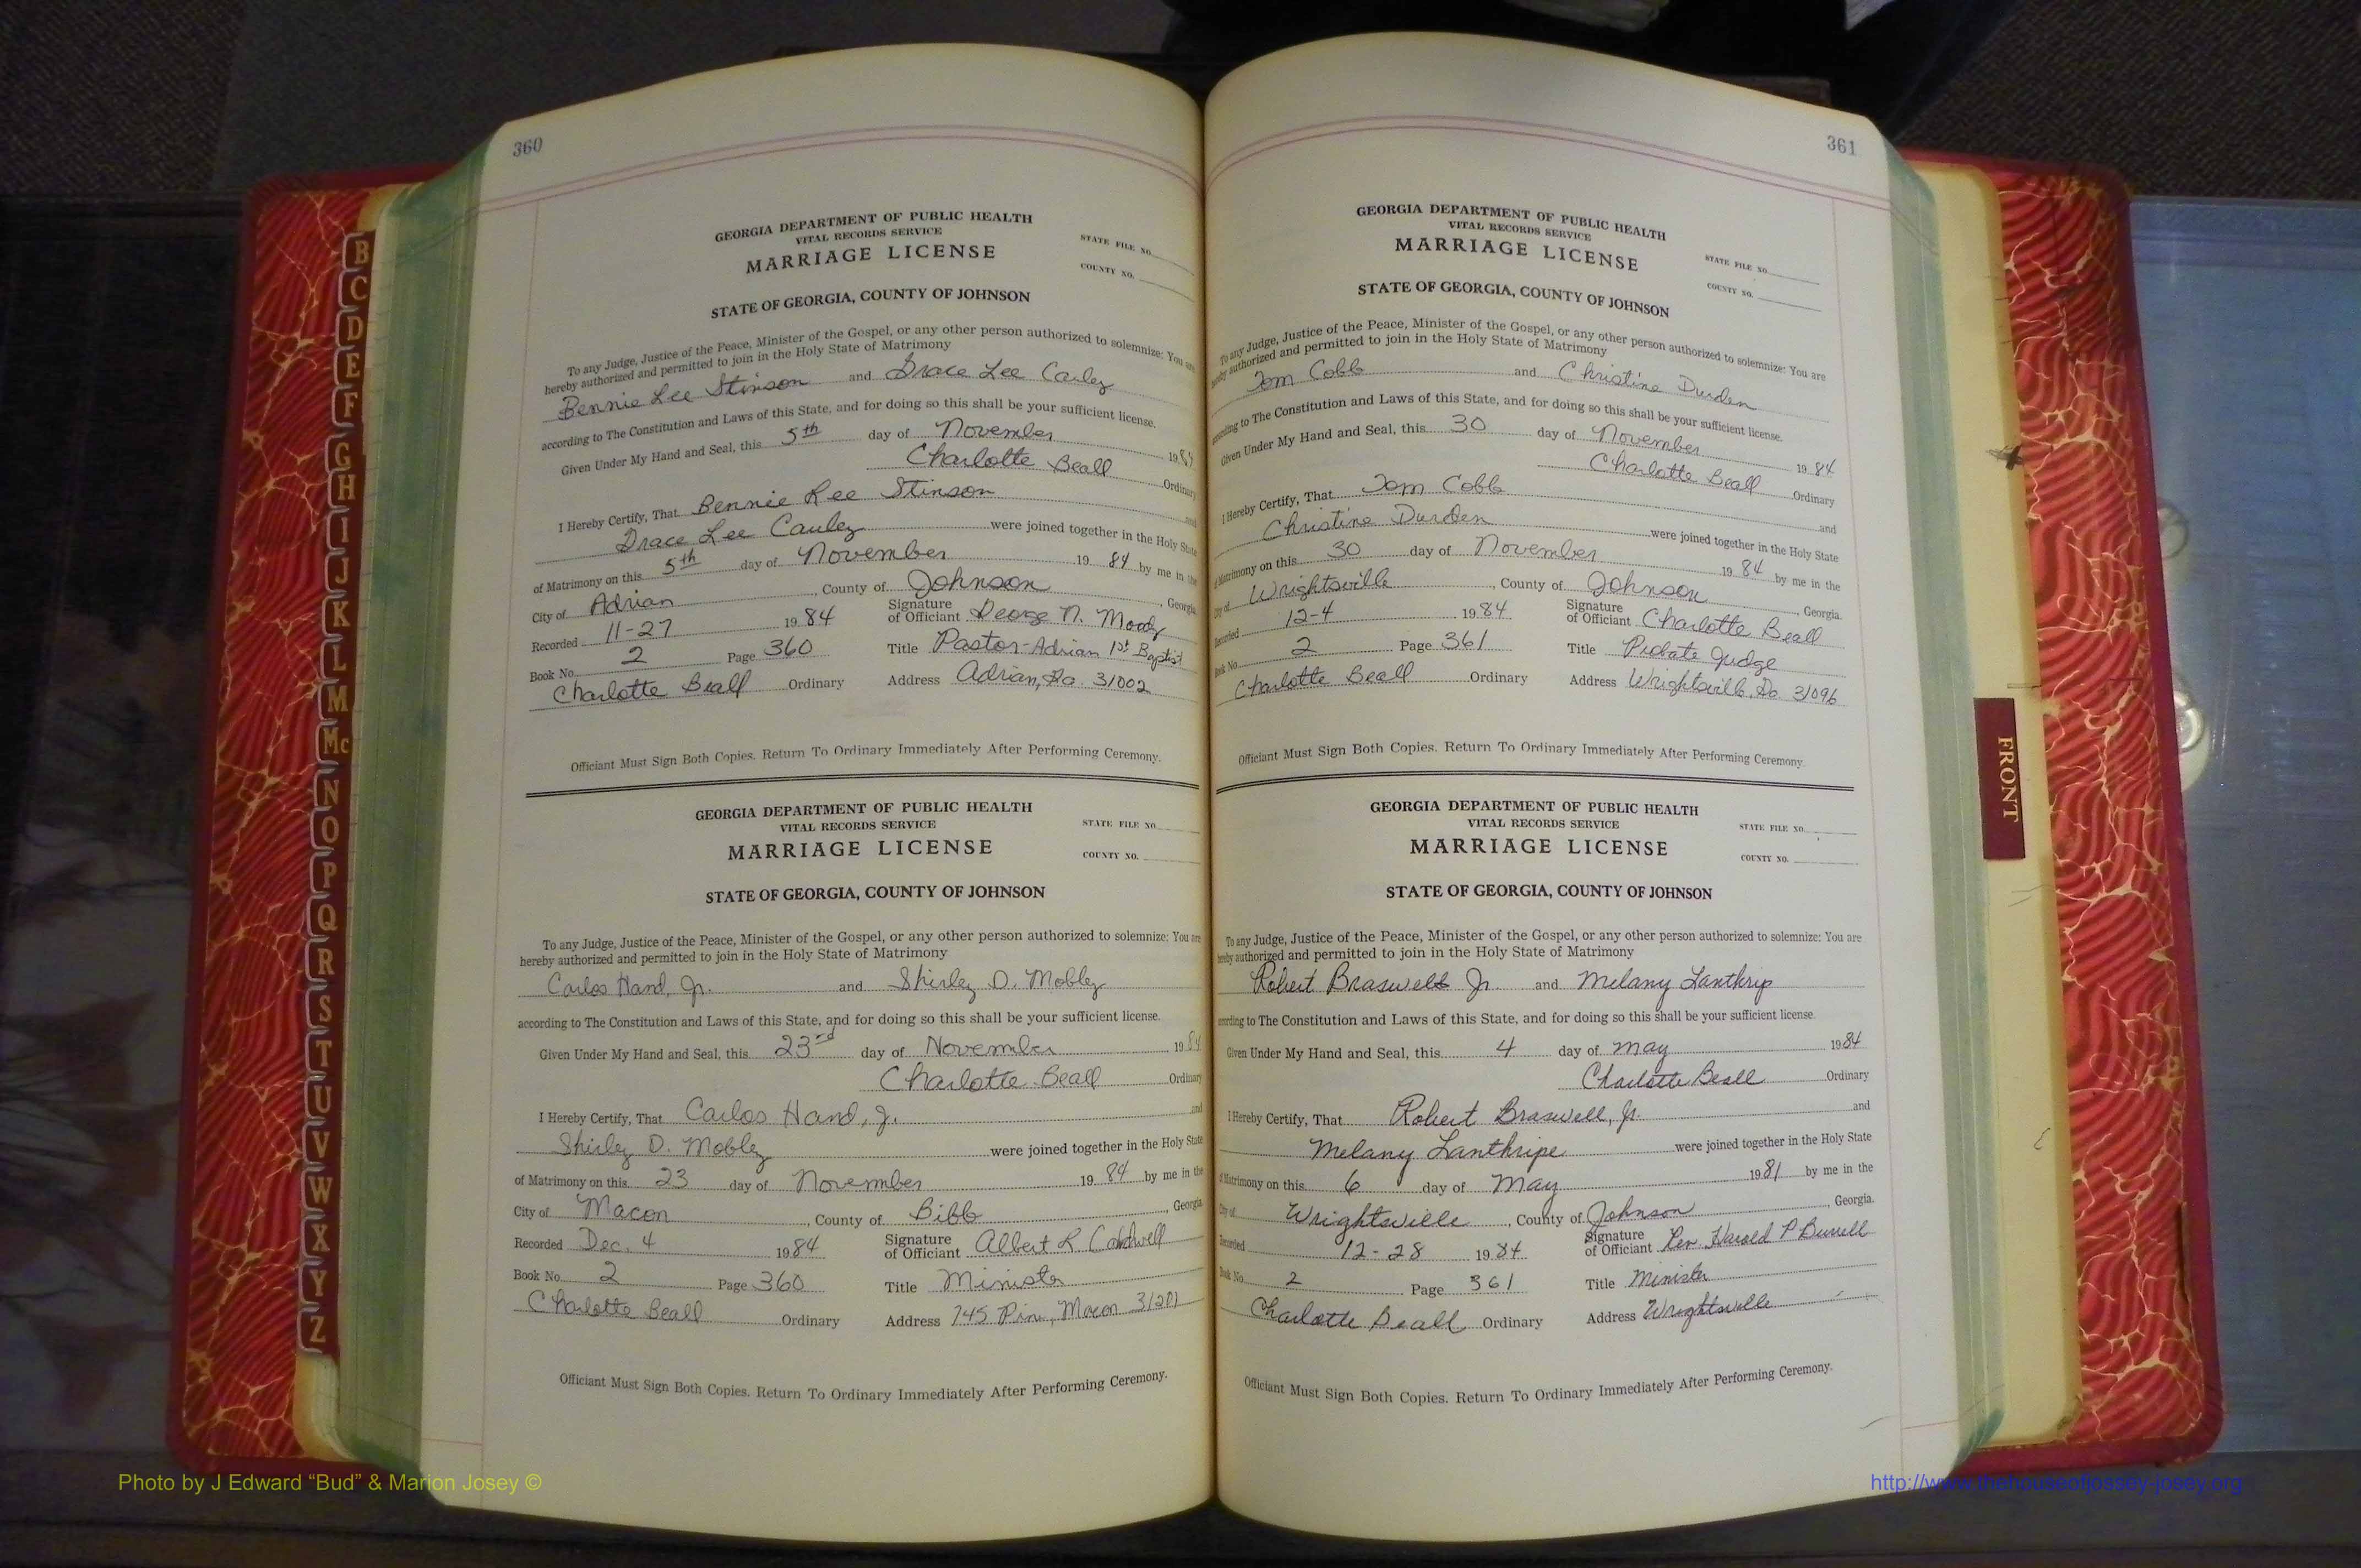 360
GEORGIA DEPARTMENT OF PUBLIC HEALTH
VITAL RECORDS SERVICE
MARRIAGE LICENSE
STATE FILE NO.
COUNTY NO.
STATE OF GEORGIA, COUNTY OF JOHNSON
To any Judge, Justice of the Peace, Minister of the Gospel, or any other person authorized to solemnize: You are
hereby authorized and permitted to join in the Holy State of Matrimony
Bennie Lee Stinson and Grace Lee Cauley
according to The Constitution and Laws of this State, and for doing so this shall be your sufficient license.
Given Under My Hand and Seal, this 5th day of November 1984
Charlotte Beall Ordinary
I Hereby Certify, That Bennie Lee Stinson and
Grace Lee Cauley were joined together in the Holy State
of Matrimony on this 5th day of November 19 84 by me in the
City of Adrian, County of Johnson, Georgia
Recorded 11-27 19 84 Signature of Officiant George N. Moody
Book No. 2 Page 360 Title Pastor-Adrian 1st Baptist
Charlotte Beall Ordinary Address Adrian, Ga. 31002
Officiant Must Sign Both Copies. Return To Ordinary Immediately After Performing Ceremony.
GEORGIA DEPARTMENT OF PUBLIC HEALTH
VITAL RECORDS SERVICE
MARRIAGE LICENSE
STATE FILE NO.
COUNTY NO.
STATE OF GEORGIA, COUNTY OF JOHNSON
To any Judge, Justice of the Peace, Minister of the Gospel, or any other person authorized to solemnize: You are
hereby authorized and permitted to join in the Holy State of Matrimony
Carlos Hand, Jr. and Shirley D. Mobley
according to The Constitution and Laws of this State, and for doing so this shall be your sufficient license.
Given Under My Hand and Seal, this 23rd day of November 1984
Charlotte Beall Ordinary
I Hereby Certify, That Carlos Hand, Jr. and
Shirley D. Mobley were joined together in the Holy State
of Matrimony on this 23 day of November 19 84 by me in the
City of Macon, County of Bibb, Georgia
Recorded Dec. 4 19 84 Signature of Officiant Albert R Caldwell
Book No. 2 Page 360 Title Minister
Charlotte Beall Ordinary Address 745 Pine, Macon 31201
Officiant Must Sign Both Copies. Return To Ordinary Immediately After Performing Ceremony.
361
GEORGIA DEPARTMENT OF PUBLIC HEALTH
VITAL RECORDS SERVICE
MARRIAGE LICENSE
STATE FILE NO.
COUNTY NO.
STATE OF GEORGIA, COUNTY OF JOHNSON
To any Judge, Justice of the Peace, Minister of the Gospel, or any other person authorized to solemnize: You are
hereby authorized and permitted to join in the Holy State of Matrimony
Tom Cobb and Christine Durden
according to The Constitution and Laws of this State, and for doing so this shall be your sufficient license.
Given Under My Hand and Seal, this 30 day of November 19 84
Charlotte Beall Ordinary
I Hereby Certify, That Tom Cobb and
Christine Durden were joined together in the Holy State
of Matrimony on this 30 day of November 19 84 by me in the
City of Wrightsville, County of Johnson, Georgia.
Recorded 12-4 19 84 Signature of Officiant Charlotte Beall
Book No. 2 Page 361 Title Probate Judge
Charlotte Beall Ordinary Address Wrightsville, Ga. 31096
Officiant Must Sign Both Copies. Return To Ordinary Immediately After Performing Ceremony.
GEORGIA DEPARTMENT OF PUBLIC HEALTH
VITAL RECORDS SERVICE
MARRIAGE LICENSE
STATE FILE NO.
COUNTY NO.
STATE OF GEORGIA, COUNTY OF JOHNSON
To any Judge, Justice of the Peace, Minister of the Gospel, or any other person authorized to solemnize: You are
hereby authorized and permitted to join in the Holy State of Matrimony
Robert Braswell Jr and Melany Lanthrip
according to The Constitution and Laws of this State, and for doing so this shall be your sufficient license.
Given Under My Hand and Seal, this 4 day of May 1984
Charlotte Beall Ordinary
I Hereby Certify, That Robert Braswell, Jr. and
Melany Lanthripe were joined together in the Holy State
of Matrimony on this 6 day of May 1981 by me in the
City of Wrightsville, County of Johnson, Georgia.
Recorded 12-28 19 84 Signature of Officiant Rev Harold P Burrell
Book No. 2 Page 361 Title Minister
Charlotte Beall Ordinary Address Wrightsville
Officiant Must Sign Both Copies. Return To Ordinary Immediately After Performing Ceremony.
B
C
D
E
F
G
H
I
J
K
L
M
Mc
N
O
P
Q
R
S
T
U
V
W
X
Y
Z
FRONT
Photo by J Edward “Bud” & Marion Josey ©
http://www.thehouseofjossey-josey.org